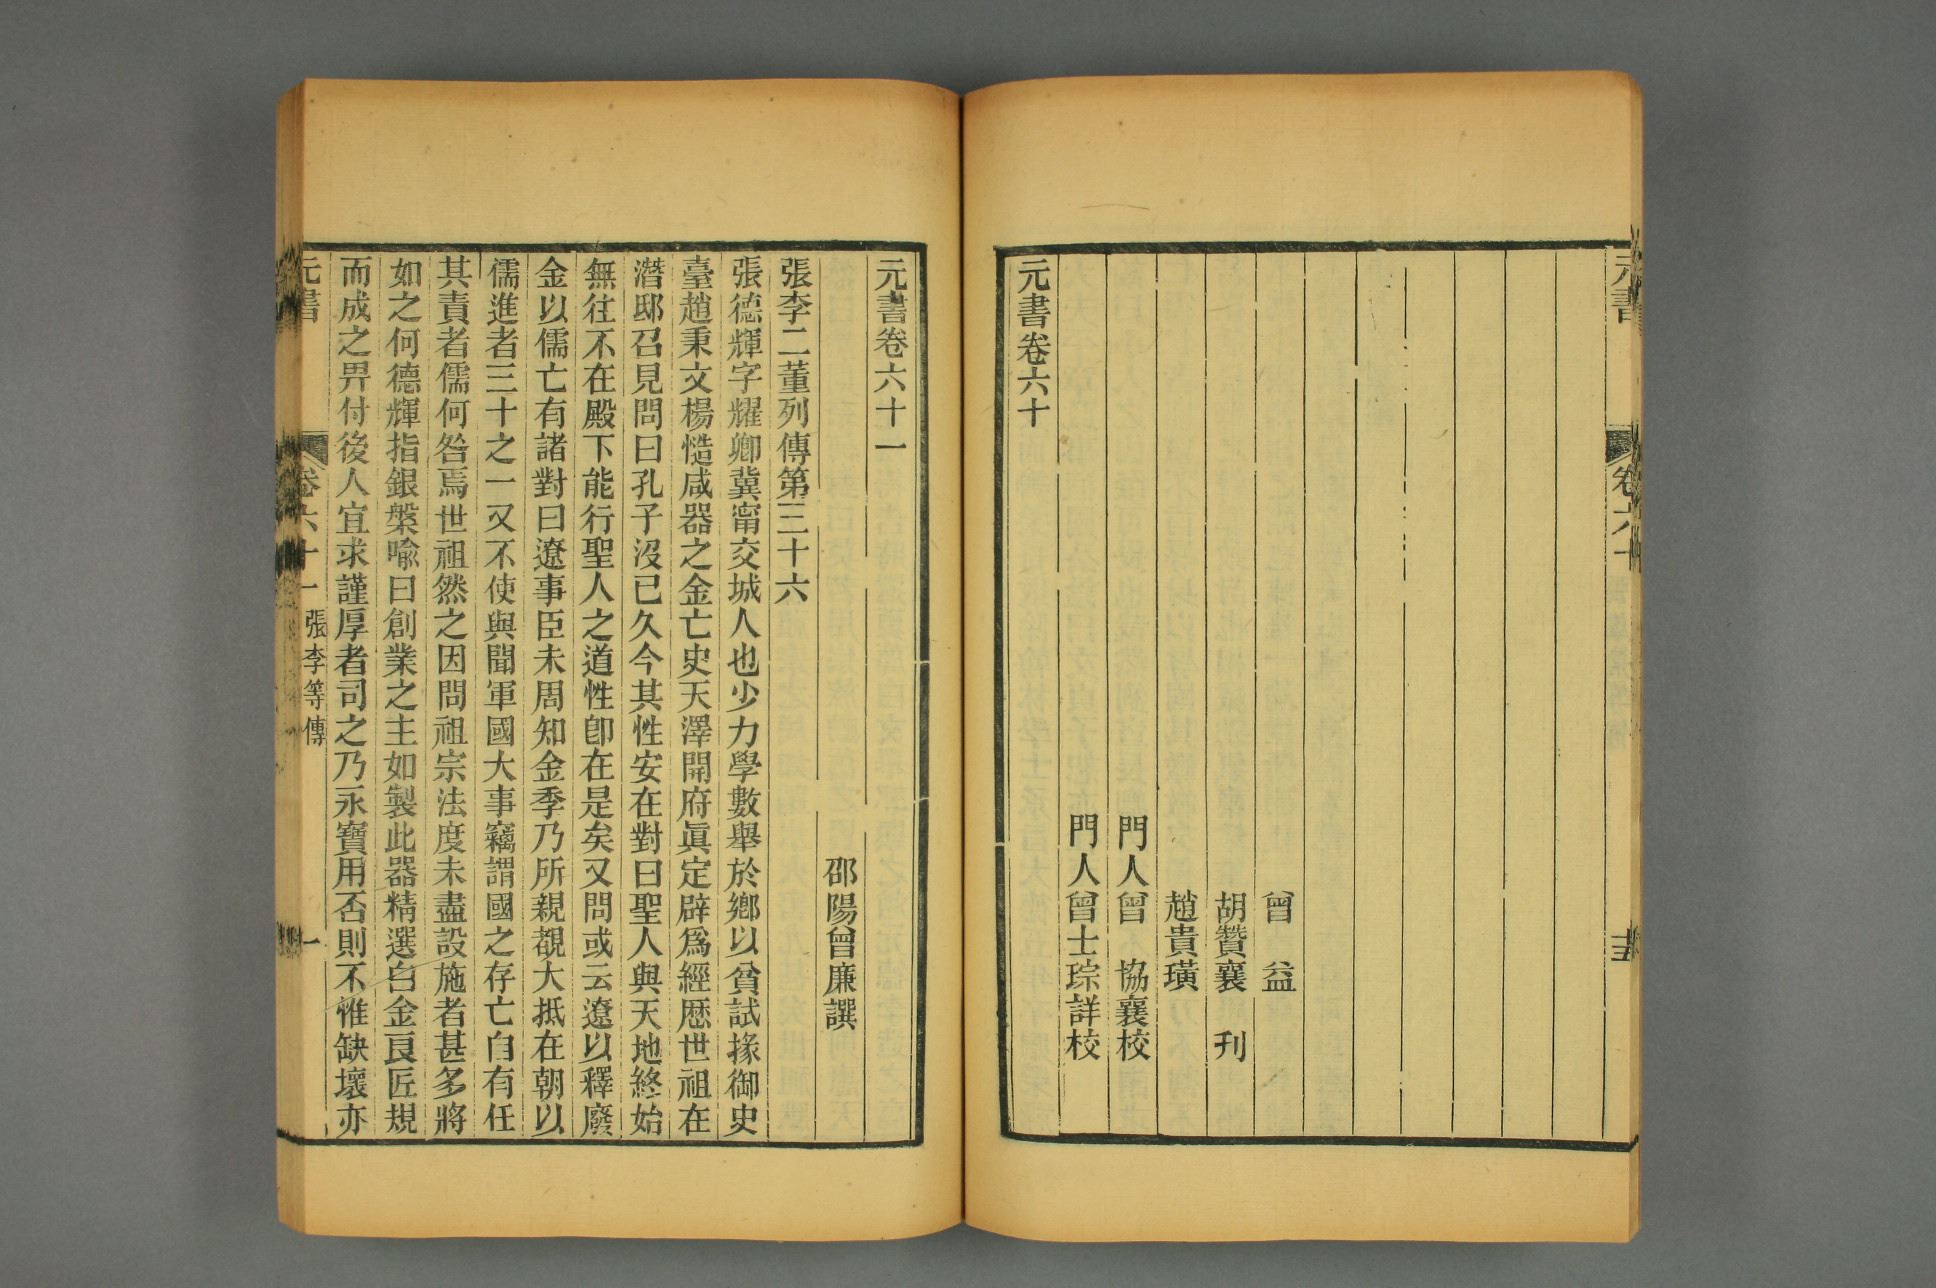 元書
卷六十
曾 益
胡贊襄 刊
趙貴璜
門人曾 協襄校
門人曾士琮詳校
元書卷六十
元書卷六十一
邵陽曾廉譔
張李二董列傳第三十六
張德輝字耀卿冀甯交城人也少力學數舉於鄉以貧試掾御史
臺趙秉文楊慥咸器之金亡史天澤開府眞定辟爲經歷世祖在
潛邸召見問曰孔子沒已久今其性安在對曰聖人與天地終始
無往不在殿下能行聖人之道性卽在是矣又問或云遼以釋廢
金以儒亡有諸對曰遼事臣未周知金季乃所親覩大抵在朝以
儒進者三十之一又不使與聞軍國大事竊謂國之存亡自有任
其責者儒何咎焉世祖然之因問祖宗法度未盡設施者甚多將
如之何德輝指銀槃喩曰創業之主如製此器精選白金良匠規
而成之畀付後人宜求謹厚者司之乃永寶用否則不惟缺壞亦
元書
卷六十一
張李等傳
一